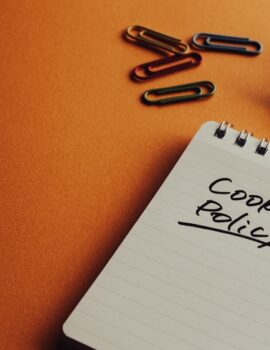 Cook
Policy